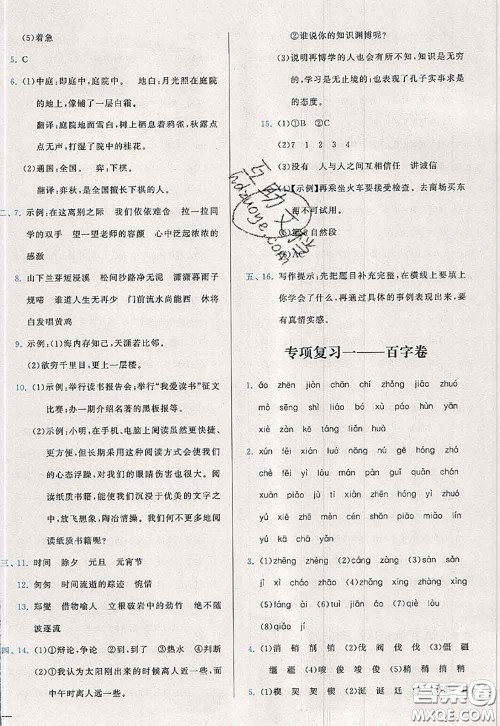 (5)着急
5. C
6. (1)中庭:即庭中,庭院中。 地白:月光照在庭院
的地上,像铺了一层白霜。
翻译:庭院地面雪白,树上栖息着鸦鹊,秋露点
点无声,打湿了院中的桂花。
(2)通国:全国。 弈:下棋。
翻译:弈秋,是全国最擅长下棋的人。
二、7. 示例:在这离别之际 我们依依难舍 拉一拉同
学的双手 望一望老师的容颜 心中泛起浓浓的
感激
8. 山下兰芽短浸溪 松间沙路净无泥 潇潇暮雨子
规啼 谁道人生无再少 门前流水尚能西 休将
白发唱黄鸡
9. 示例:(1)海内存知己,天涯若比邻。
(2)欲穷千里目,更上一层楼。
10. (1)示例:举行读书报告会;举行“我爱读书”征文
比赛;办一期介绍名著的黑板报等。
(2)示例:小明,在手机、电脑上阅读虽然更快捷、
更方便,但长期采用这种阅读方式会使我们
的心态浮躁,对我们的眼睛伤害也非常大。
阅读纸质书籍,能使我们沉浸于优美的文字之
中,放飞心灵,陶冶情操。我们何乐而不多地阅
读纸质书籍呢?
三、11. 时间 除夕 元旦 元宵节
12. 匆匆 时间流逝的踪迹 慌惜
13. 郑燮 借物喻人 立根破岩中的劲竹 绝不随
波逐流
四、14. (1)①辩论,争论 ②到,到了 ③热水 ④判断
(2)①我认为太阳刚出来的时候离人近一些,而
中午时离人远一些。
②谁说你的知识渊博呢?
(3)说明再博学的人也会有所不知,知识是无穷
的,学习是无止境的;也体现了孔子实事求是
的态度。
15. (1)①B ②C
(2)7 1 2 3 4
(3)没有 人与人之间互相信任 讲诚信
(4)【示例】再乘坐火车要接受检查。去商场买东
西不可试用。
自然段
五、16. 写作提示:先把题目补充完整,在横线上要填上
你学会了什么,再通过具体的事例表现出来,要
有真情实感。
专项复习一——百字卷
1. ào zhēn jiàn chán chì zhēng jiǎo zhuó
mó shì sī sǒng mào duó pào hūn yān
xiè
2. xī cì kǎn luó nuó gē hóng zhé
chí hàn cuō lún jù fú gēng jǐ guǎ
yuè páo xī xùn jié niǎn qiān zhǎn
cáng
3. (1)zhēng zhèng (2)cáng zàng (3)sǎn sàn
(4)jǐ xì (5)chá chā (6)pū pù (7)bó báo
(8)qiāo jǐ
4. (1)消 销 削 硝 (2)伐 阀 筏 (3)僵 疆
缰 疆 (4)峻 竣 俊 (5)侨 桥 矫
5. (1)楔 契 契 楔 (2)涎 诞 廷
答案圈
MXQE.COM